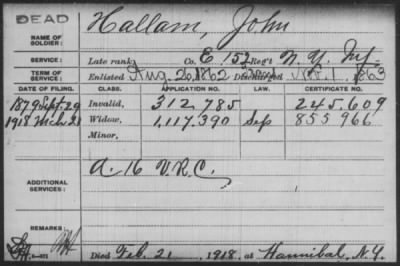 DEAD
NAME OF SOLDIER: Hallam, John
SERVICE: Late rank, Co. E, 152 Reg't N. Y. Inf.
TERM OF SERVICE: Enlisted Aug. 26, 1862 Discharged 1, 1863
DATE OF FILING. CLASS. APPLICATION NO. LAW. CERTIFICATE NO.
1879 Sept. 29 Invalid, 312,785 245.609
1918 Mch 21 Widow, 1,117.390 Sep 855966
Minor,
ADDITIONAL SERVICES: A. 16 V.R.C.
REMARKS:
Died Feb. 21, 1918, at Hannibal, N.Y.